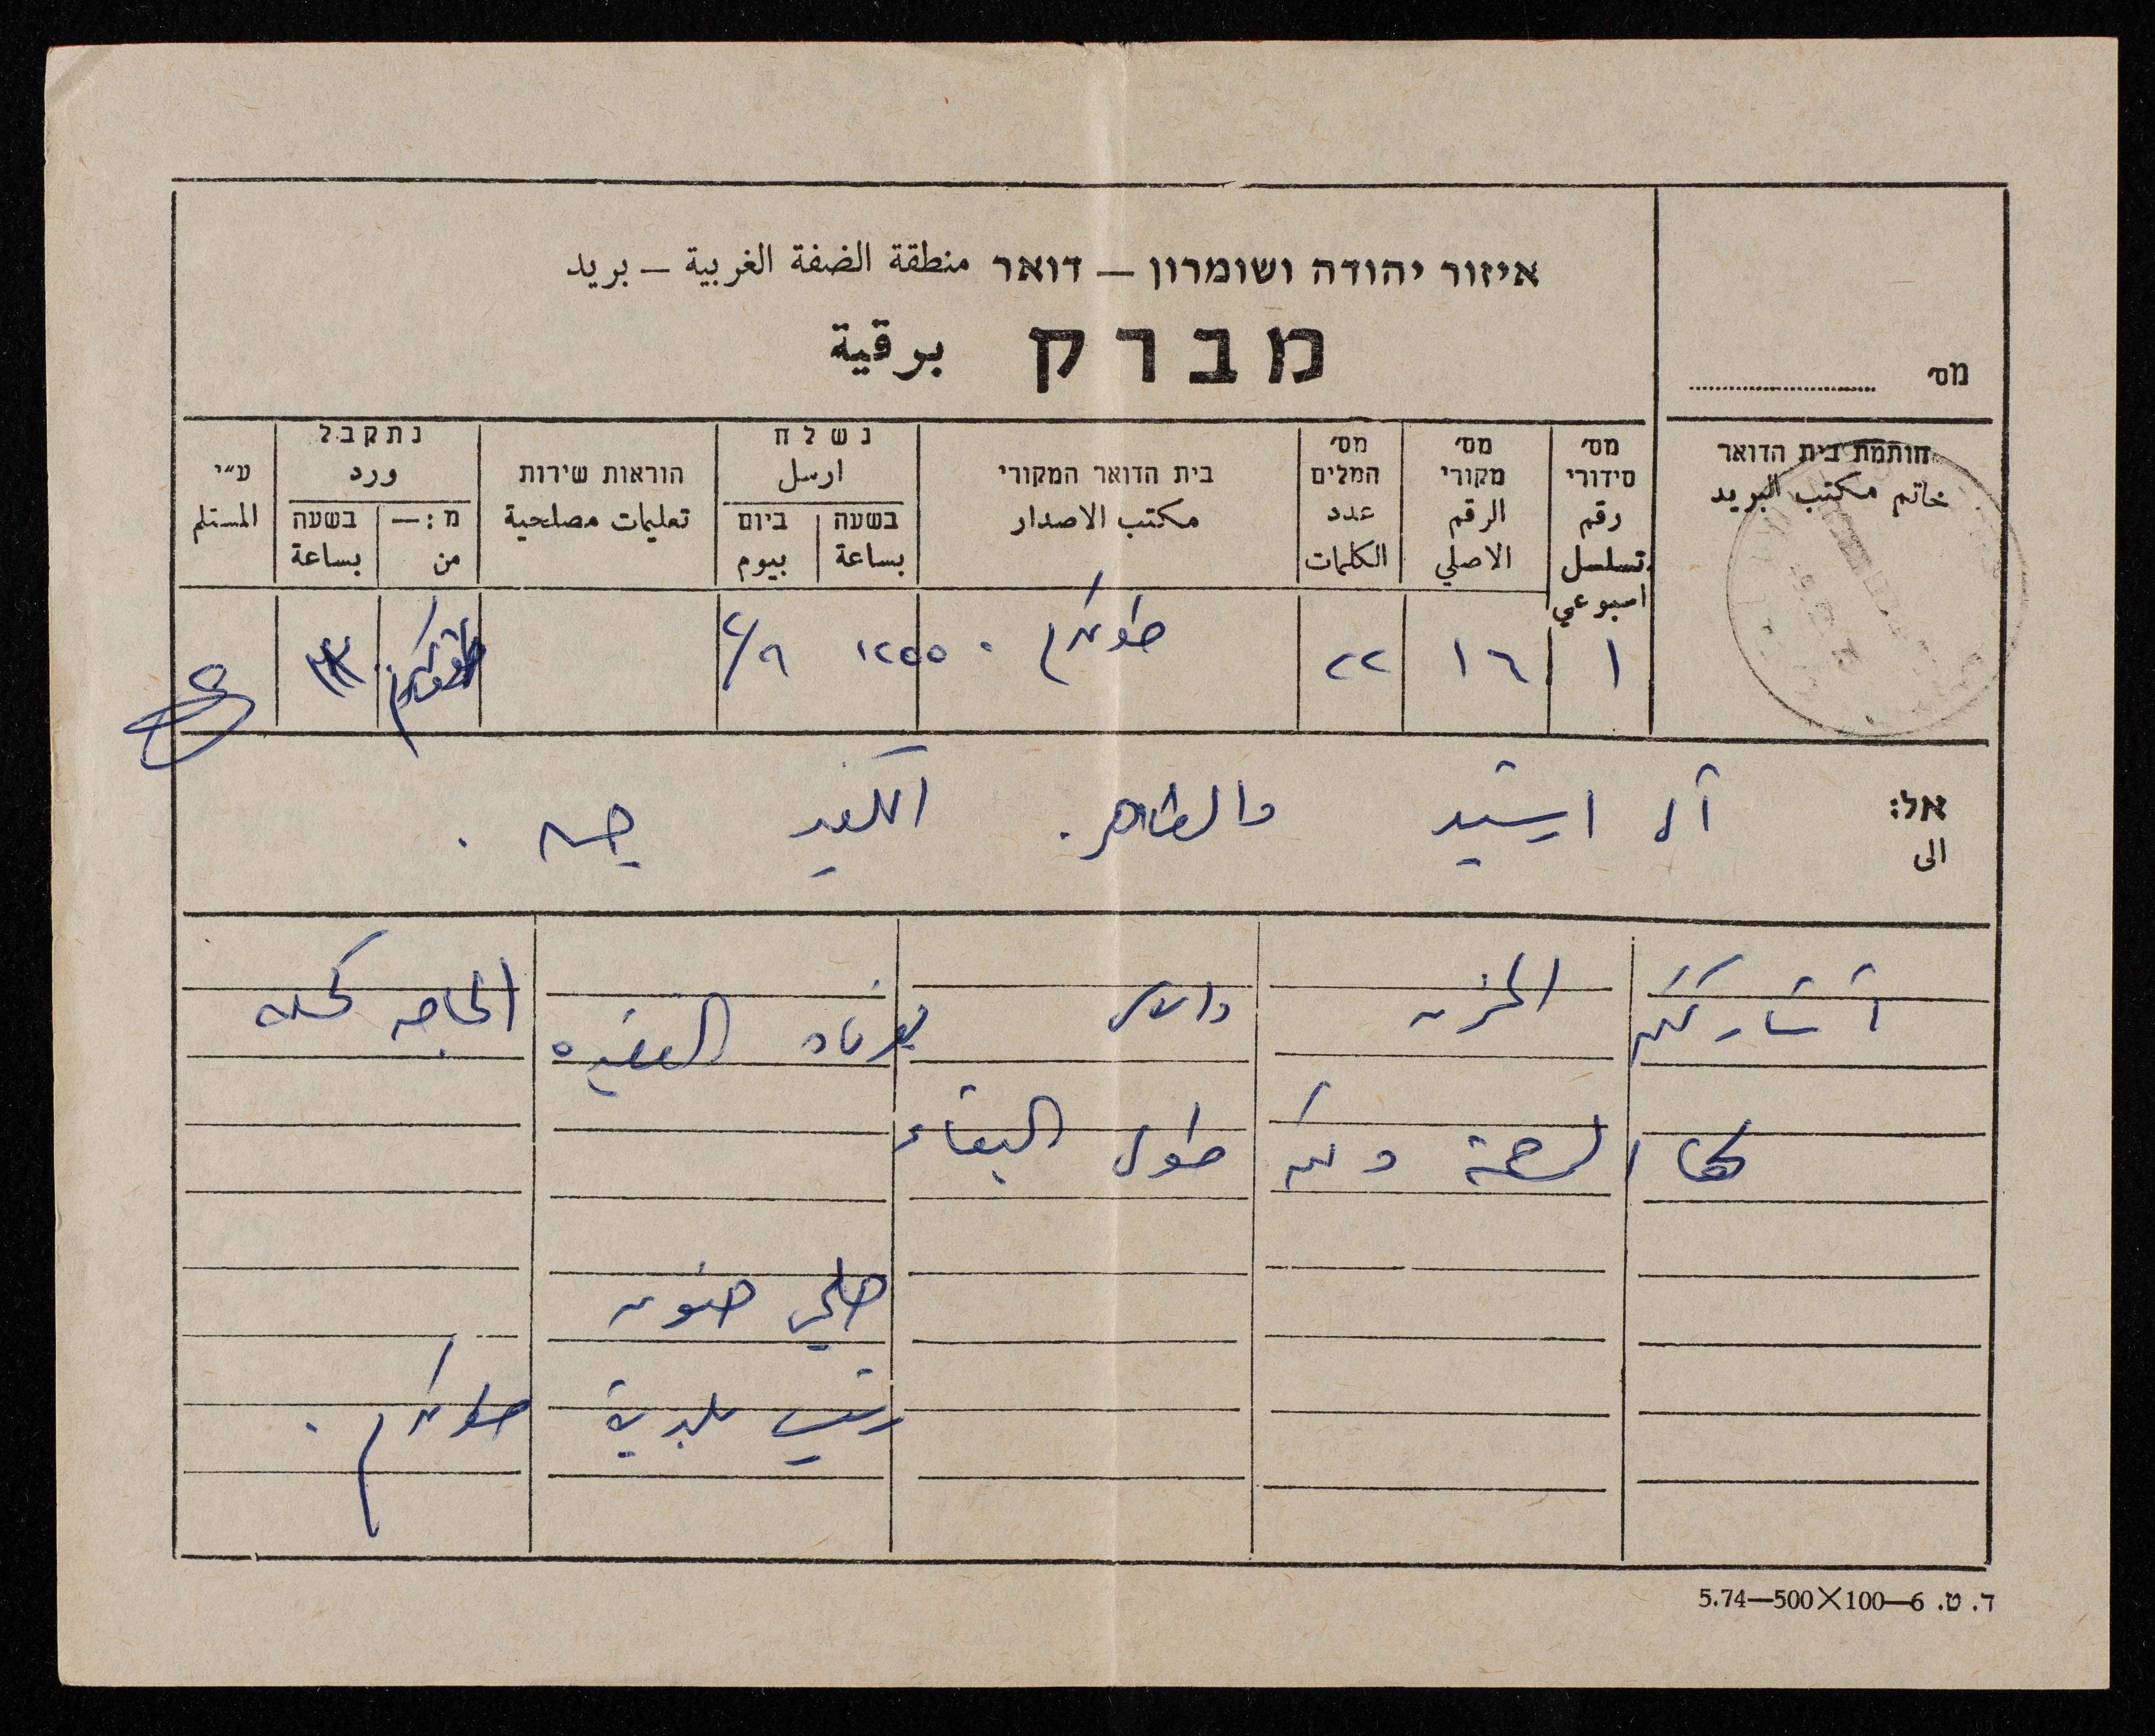 איזור יהודה ושומרון – דואר منطقة الضفة الغربية – بريد
מברק برقية
מס׳
חותמת בית הדואר
خاتم مكتب البريد
מס׳ סידורי رقم تسلسل اسبوعي
מס׳ מקורי الرقم الاصلي
מס׳ המלים عدد الكلمات
בית הדואר המקורי مكتب الاصدار
נשלח ارسل
בשעה بساعة
ביום بيوم
הוראות שירות تعليمات مصلحية
נתקבל ورد
מ:– من
בשעה بساعة
ע״י المستلم
١ ١٦ ٢٢ طولكرم ١٢٥٥ ٢/٩
אל: الى
آل ارشيد والظاهر. الكفير جنين.
أشاركم الحزن والاسى بوفاة الفقيدة الحاجه
لها الرحمة ولكم طول البقاء
حلمي حنون
رئيس بلدية طولكرم.
ד. ט. 6—100×500—5.74